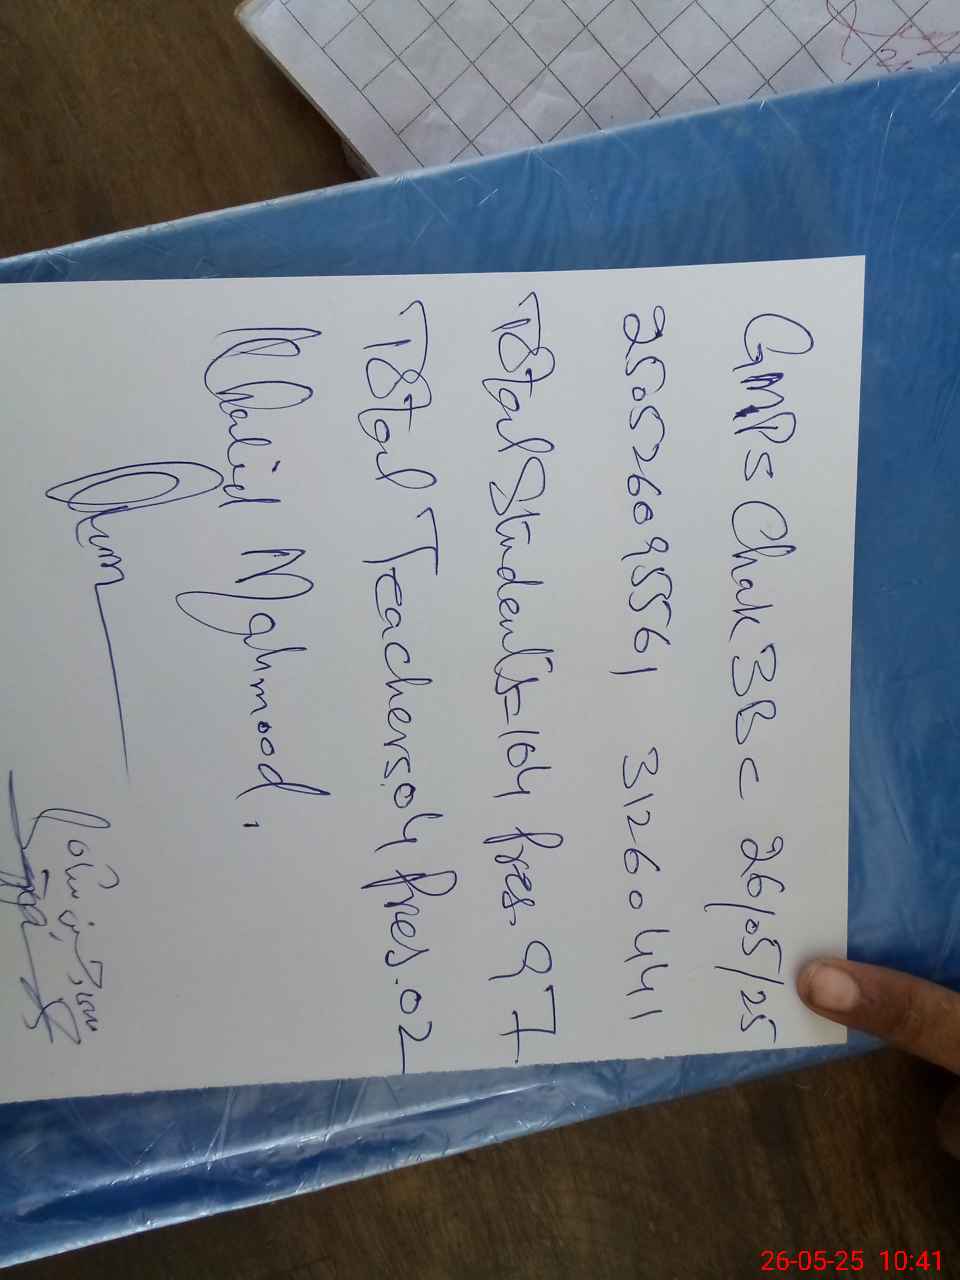 GMPS Chak 3BC 26/05/25
25052609556​1 31260441
Total Students=104 Pres. 97
Total Teachers.04 Pres.02
Khalid Mahmood.
26-05-25 10:41